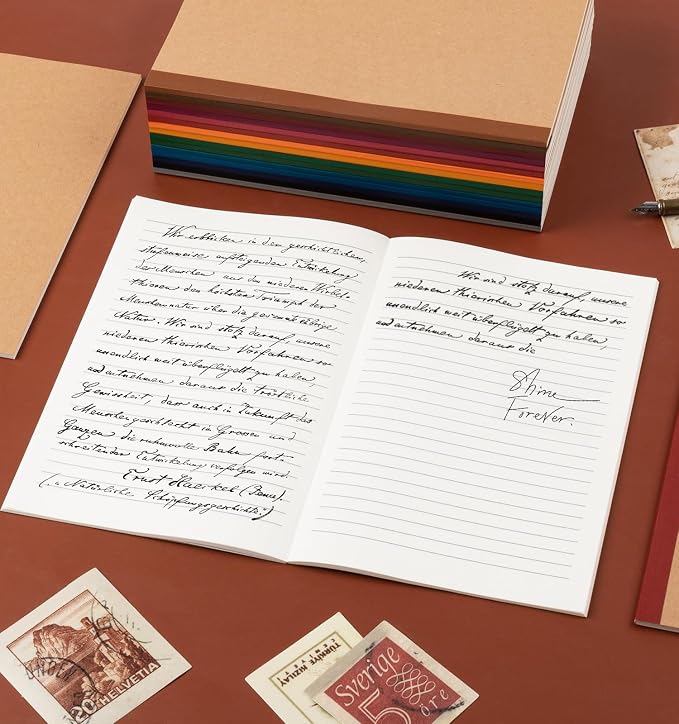 Wir erblicken in dem geschichtlichen,
stufenweise aufsteigenden Entwickelung
des Menschen aus den niederen Wirbel-
thieren den höchsten Triumph der
Menschennatur über die gesammte übrige
Natur. Wir sind stolz darauf, unsere
niederen thierischen Vorfahren so
unendlich weit überflügelt zu haben,
und entnehmen daraus die tröstliche
Gewissheit, dass auch in Zukunft das
Menschengeschlecht im Grossen und
Ganzen die ruhmvolle Bahn fort-
schreitender Entwickelung verfolgen wird.
Ernst Haeckel (Jena).
("Natürliche Schöpfungsgeschichte.")
Wir sind stolz darauf, unsere
niederen thierischen Vorfahren so
unendlich weit überflügelt zu haben
und entnehmen daraus die
Shine
Forever.
20 HELVETIA
TÜRKİYE KIZILAY
CEMİYETİ
Sverige
5
öre